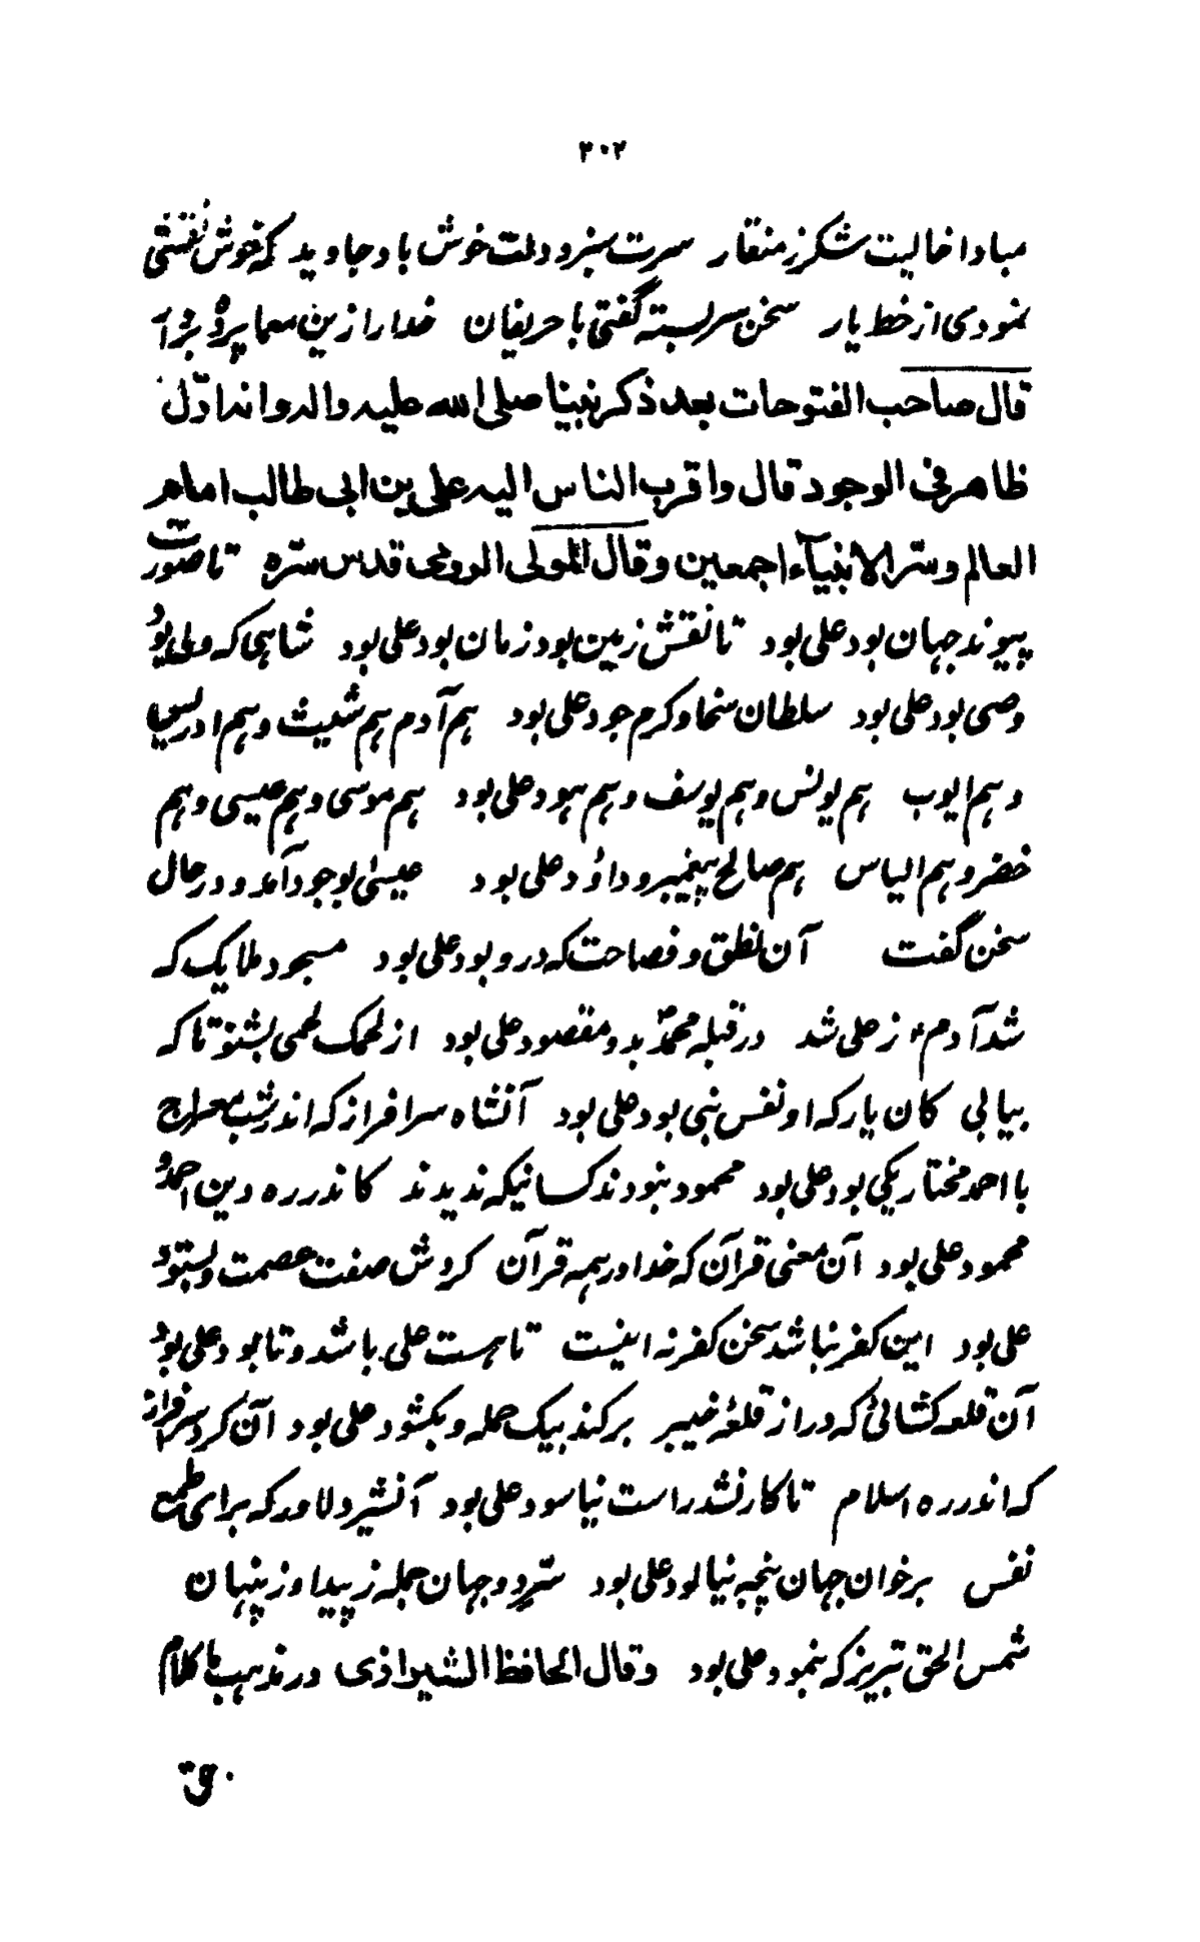 ۳۰۲
مبادا خالیت شکر ز منقار سرت سبز و دلت خوش باد جاوید که خوش نقشی
نمودی از خط یار سخن سربسته گفتی با حریفان خدا را زین معما پرده بردار
قال صاحب الفتوحات بعد ذکر نبینا صلی الله علیه واله وانه اول
ظاهر فی الوجود قال واقرب الناس الیه علی بن ابی طالب امام
العالم وسر الانبیآء اجمعین وقال المولی الرومی قدس سره تا صورت
پیوند جهان بود علی بود تا نقش زمین بود زمان بود علی بود شاهی که ولی بود
وصی بود علی بود سلطان سخا و کرم جود علی بود هم آدم هم شیث و هم ادریس
و هم ایوب هم یونس و هم یوسف و هم هود علی بود هم موسی و هم عیسی و هم
خضر و هم الیاس هم صالح پیغمبر و داؤد علی بود عیسی بوجود آمد و در حال
سخن گفت آن نطق و فصاحت که درو بود علی بود مسجود ملایک که
شد آدمؑ ز علی شد در قبله محمدؐ بد و مقصود علی بود از لحمک لحمی بشنو تا که
بیابی کان یار که او نفس نبی بود علی بود آنشاه سرافراز که اندر شب معراج
با احمد مختار یکی بود علی بود محمود نبودند کسانیکه ندیدند کاندر ره دین احمد و
محمود علی بود آن معنی قرآن که خدا در همه قرآن کردش صفت عصمت و بستود
علی بود این کفر نباشد سخن کفر نه اینست تا هست علی باشد و تا بود علی بود
آن قلعه کشائی که در از قلعهٔ خیبر برکند بیک حمله و بکشود علی بود آن گرد سرافراز
که اندر ره اسلام تا کار نشد راست نیاسود علی بود آنشیر دلاور که برای طمع
نفس برخوان جهان پنجه نیالود علی بود سرّ دو جهان جمله ز پیدا و ز پنهان
شمس الحق تبریز که بنمود علی بود وقال الحافظ الشیرازی در مذهب ما کلام